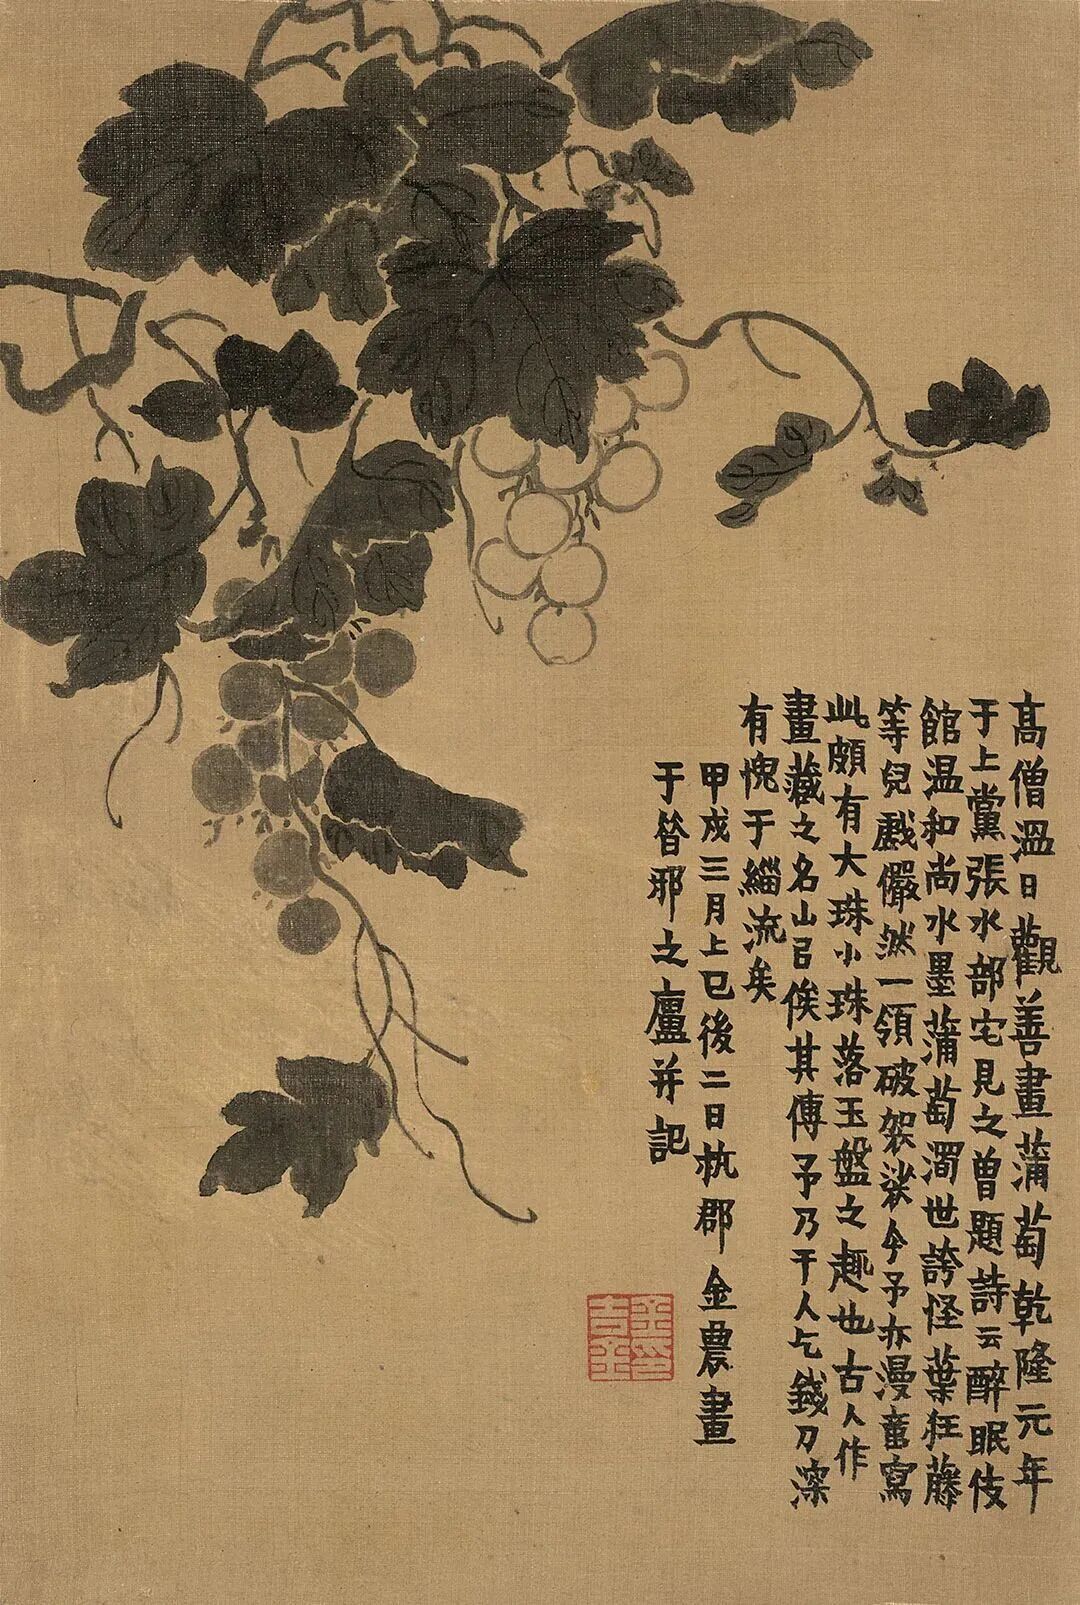 高僧溫日觀善畫蒲萄乾隆元年
于上黨張水部宅見之曾題詩云醉眠伎
館温和尚水墨蒲萄濁世誇怪葉狂藤
等兒戲儼然一領破袈裟今予亦漫畫寫
此頗有大珠小珠落玉盤之趣也古人作
畫藏之名山㠯俟其傳予乃干人乞錢刀深
有愧于緇流矣
甲戌三月上巳後二日杭郡金農畫
于昔邪之廬并記
金吉金印